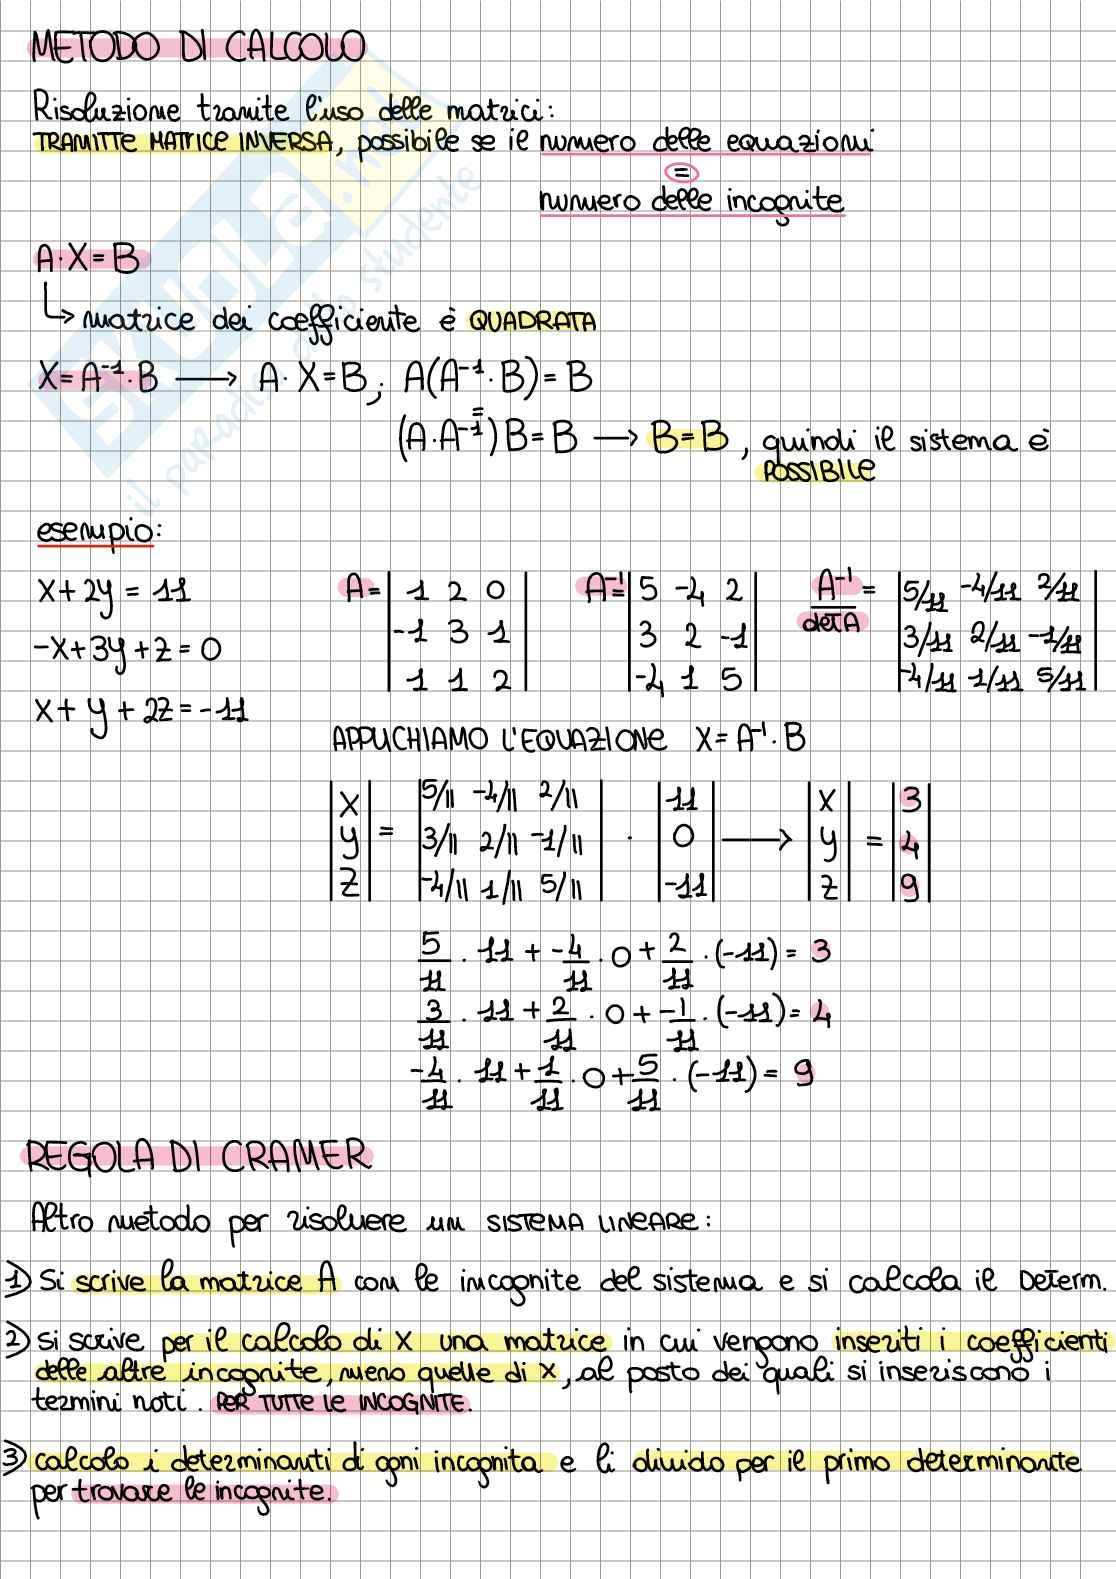 METODO DI CALCOLO
Risoluzione tramite l'uso delle matrici:
TRAMITTE MATRICE INVERSA, possibile se il numero delle equazioni
=
numero delle incognite
A·X=B
↳ matrice dei coefficiente è QUADRATA
X=A⁻¹·B ⟶ A·X=B; A(A⁻¹·B)=B
=
(A·A⁻¹)B=B → B=B, quindi il sistema è
POSSIBILE
esempio:
x+2y=11
-x+3y+z=0
x+y+2z=-11
A= | 1 2 0 |
| -1 3 1 |
| 1 1 2 |
A⁻¹= | 5 -4 2 |
| 3 2 -1 |
| -4 1 5 |
A⁻¹/detA = | 5/11 -4/11 2/11 |
| 3/11 2/11 -1/11 |
| -4/11 1/11 5/11 |
APPLICHIAMO L'EQUAZIONE X=A⁻¹·B
| x | | 5/11 -4/11 2/11 | | 11 | | x | | 3 |
| y | = | 3/11 2/11 -1/11 | · | 0 | ⟶ | y | = | 4 |
| z | | -4/11 1/11 5/11 | | -11 | | z | | 9 |
5/11 · 11 + -4/11 · 0 + 2/11 · (-11) = 3
3/11 · 11 + 2/11 · 0 + -1/11 · (-11) = 4
-4/11 · 11 + 1/11 · 0 + 5/11 · (-11) = 9
REGOLA DI CRAMER
Altro metodo per risolvere un SISTEMA LINEARE:
1) Si scrive la matrice A con le incognite del sistema e si calcola il Determ.
2) si scrive per il calcolo di x una matrice in cui vengono inseriti i coefficienti
delle altre incognite, meno quelle di x, al posto dei quali si inseriscono i
termini noti. PER TUTTE LE INCOGNITE.
3) calcolo i determinanti di ogni incognita e li divido per il primo determinante
per trovare le incognite.
skuola.net
il paradiso dello studente